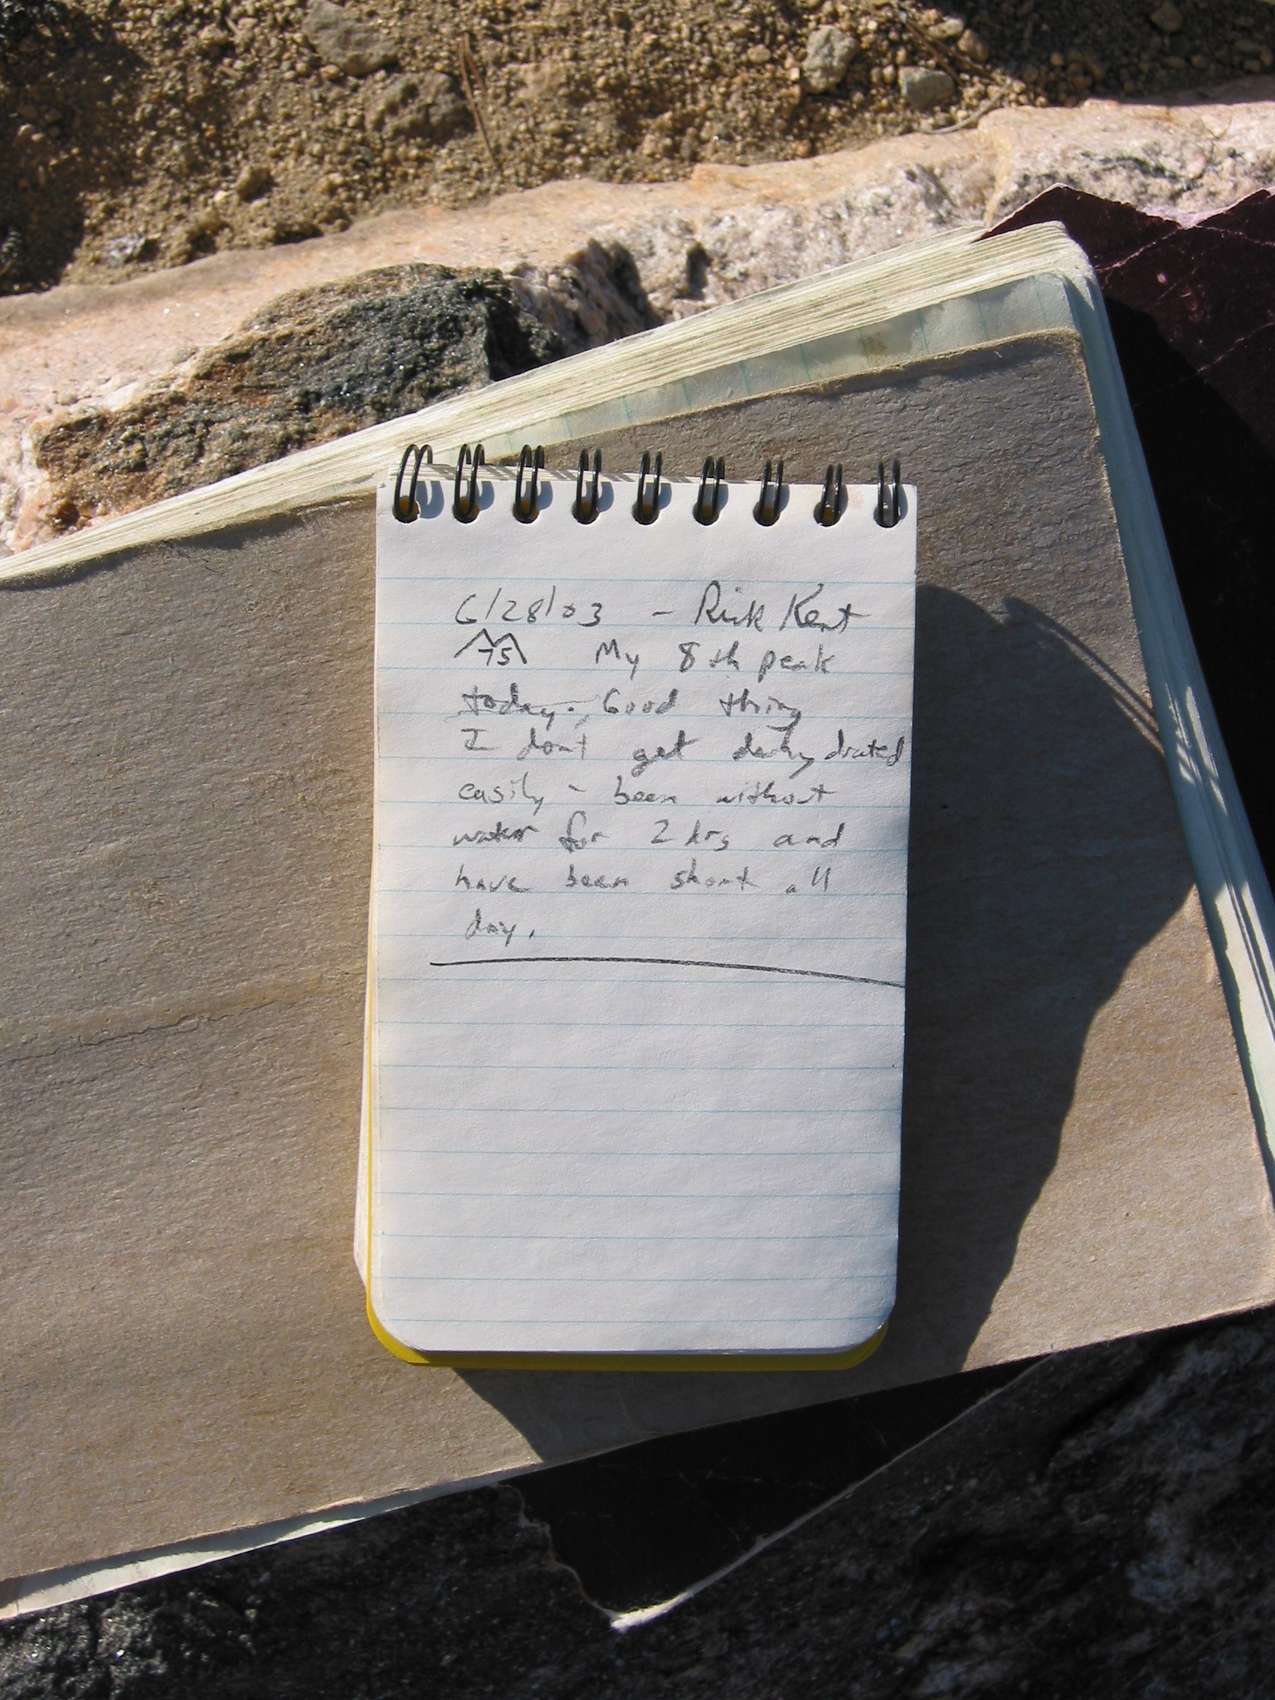 6/28/03 - Rick Kent
75 My 8th peak
today. Good thing
I don't get dehydrated
easily - been without
water for 2 hrs and
have been short all
day.